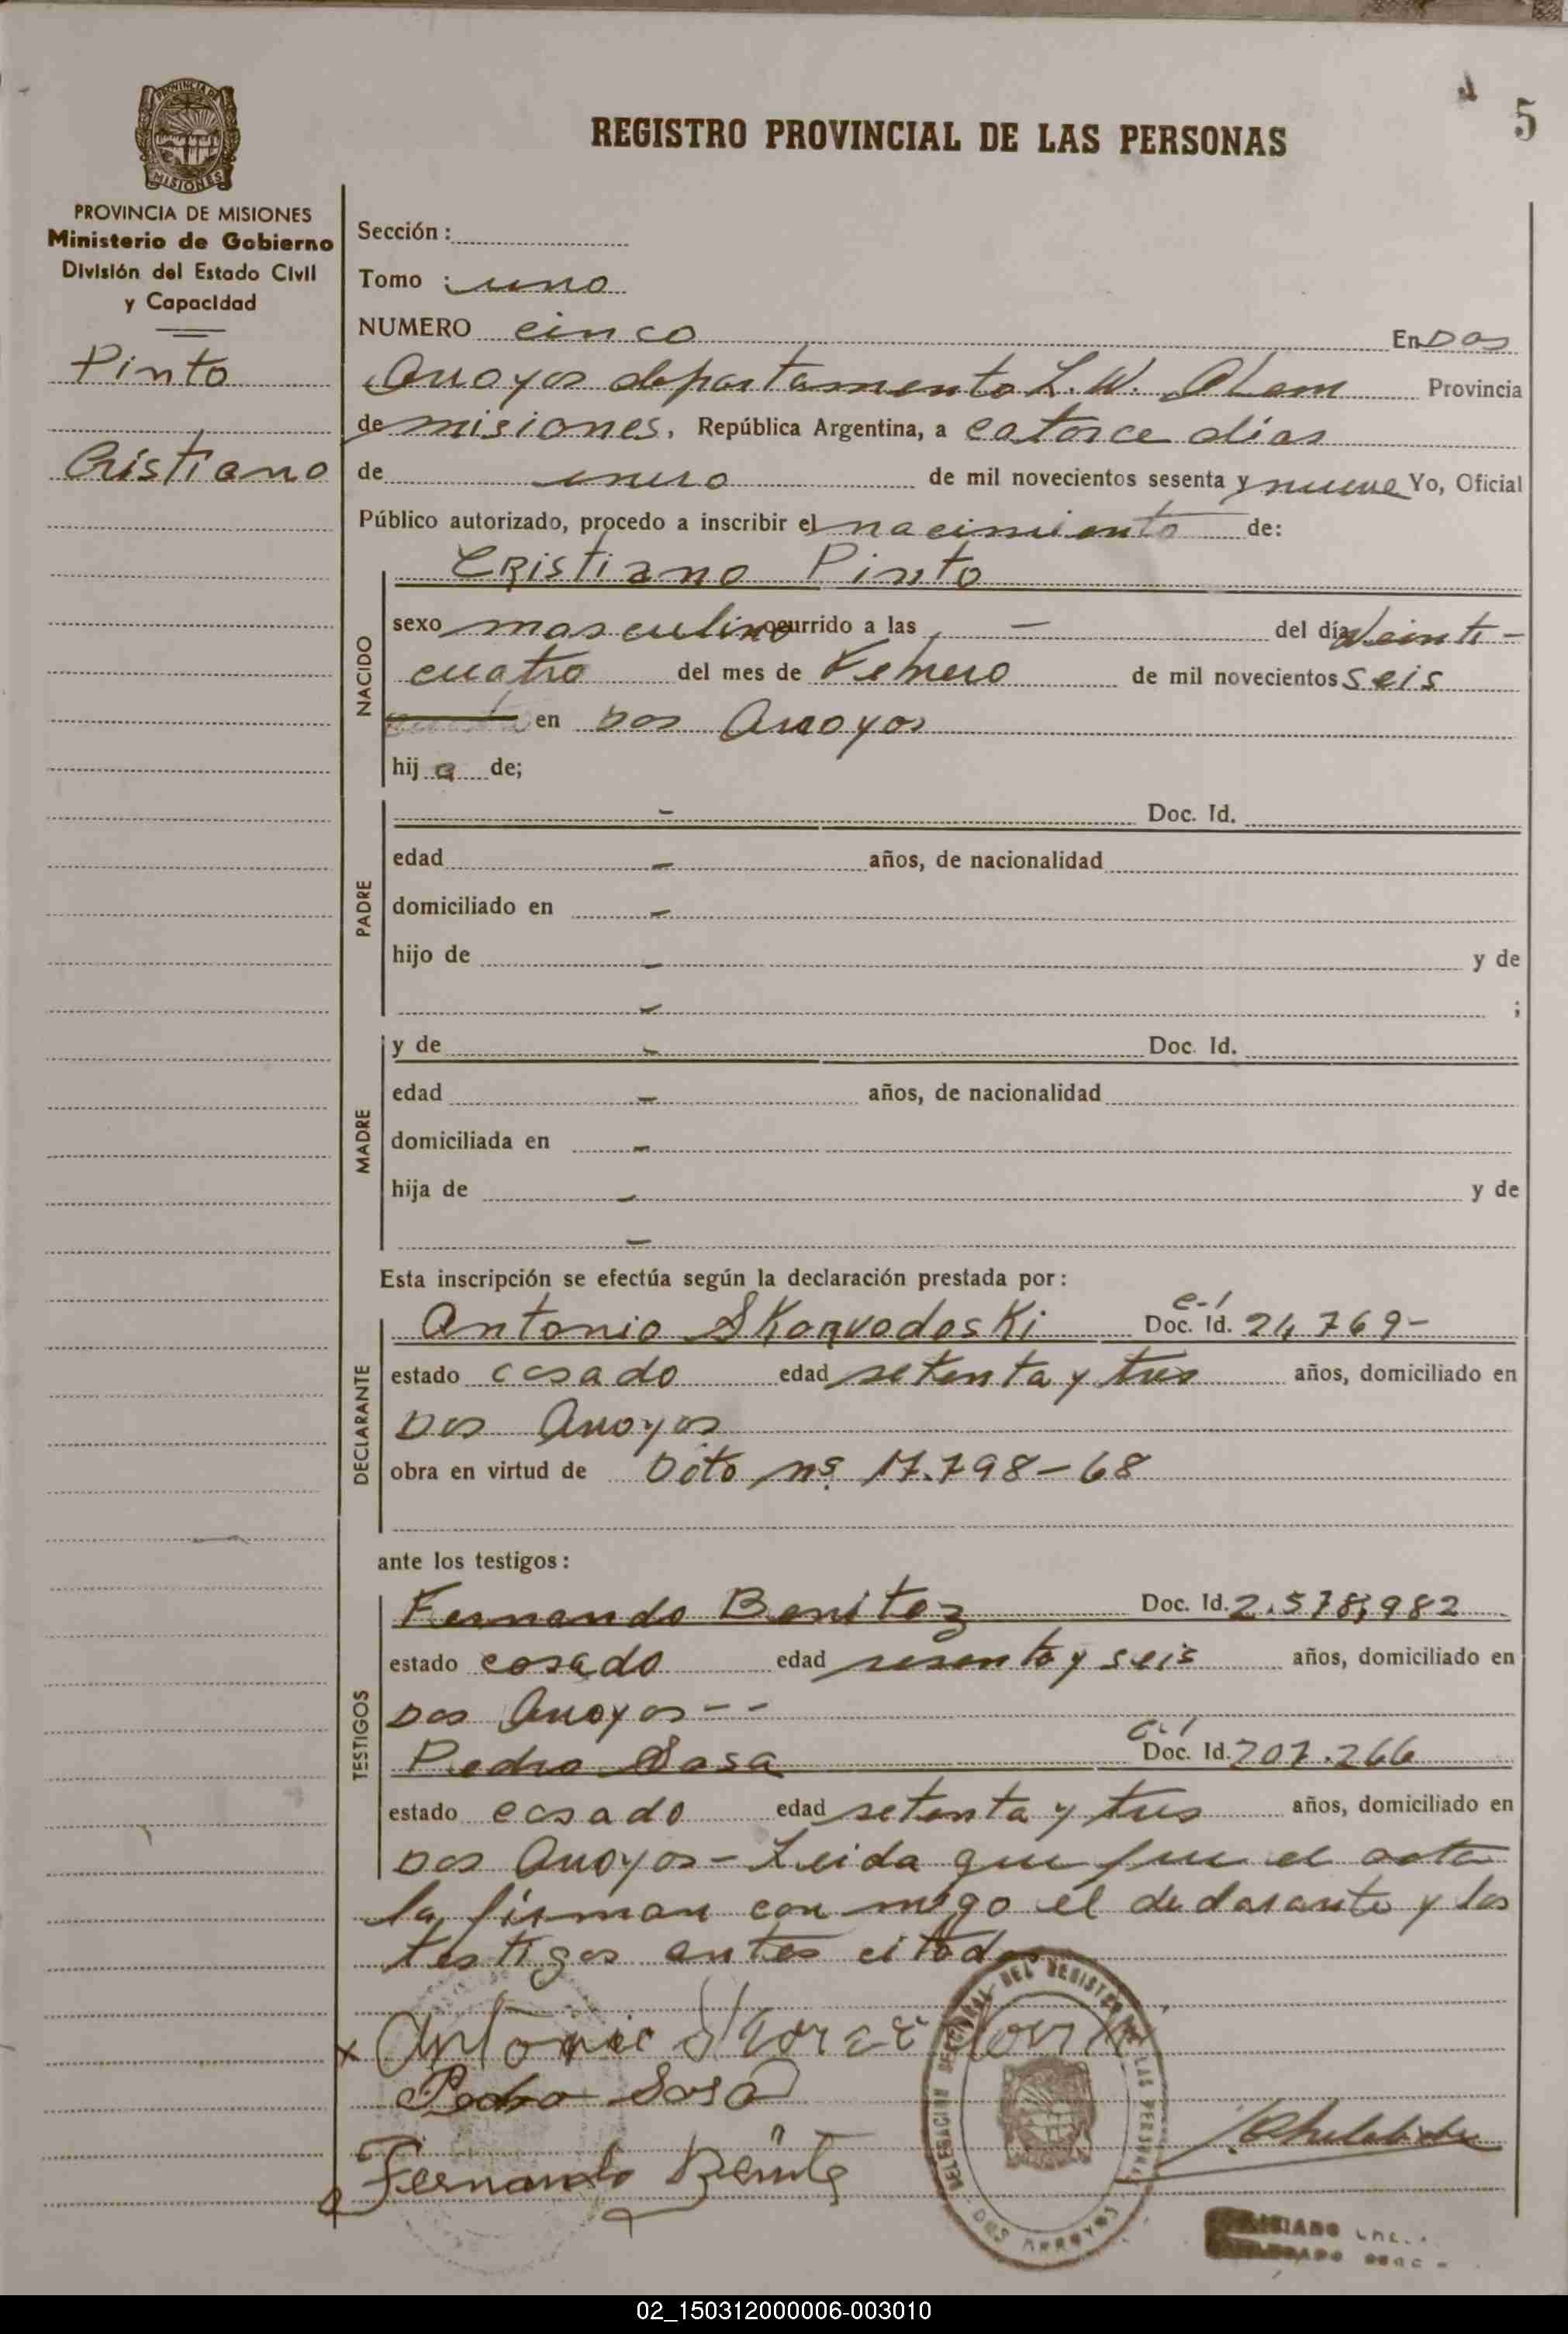 5
REGISTRO PROVINCIAL DE LAS PERSONAS
PROVINCIA DE
MISIONES
PROVINCIA DE MISIONES
Ministerio de Gobierno
División del Estado Civil
y Capacidad
Pinto
Cristiano
Sección :
Tomo : uno
NUMERO cinco En Dos
Arroyos departamento L. W. Alem Provincia
de misiones, República Argentina, a catorce días
de enero de mil novecientos sesenta y nueve Yo, Oficial
Público autorizado, procedo a inscribir el nacimiento de:
NACIDO
Cristiano Pinto
sexo masculino ocurrido a las - del día veinti-
cuatro del mes de Febrero de mil novecientos seis
en Dos Arroyos
hij o de;
PADRE
- Doc. Id.
edad - años, de nacionalidad
domiciliado en -
hijo de - y de
- ;
MADRE
y de - Doc. Id.
edad - años, de nacionalidad
domiciliada en -
hija de - y de
-
Esta inscripción se efectúa según la declaración prestada por :
DECLARANTE
Antonio Skorvodoski Doc. Id. c-i 24,769-
estado casado edad setenta y tres años, domiciliado en
Dos Arroyos
obra en virtud de Dcto nº 17.798-68
ante los testigos :
TESTIGOS
Fernando Benitez Doc. Id. 2.578,982
estado casado edad sesenta y seis años, domiciliado en
Dos Arroyos - -
Pedro Sosa c.i Doc. Id. 207.266
estado casado edad setenta y tres años, domiciliado en
Dos Arroyos - Leida que fue el acta
la firman con migo el declarante y los
testigos antes citados
x Antonio
Pedro Sosa
Fernando Benitez
DELEGACION SECCIONAL DEL REGISTRO DE LAS PERSONAS
DOS ARROYOS
02_150312000006-003010